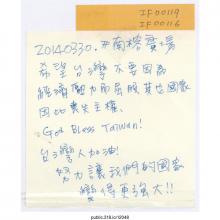 IF00119
IF00116
20140330. #南榕賣場
希望台灣不要因為
經濟壓力而屈服其他國家
因此喪失主權.
God Bless Taiwan!
台灣人加油!
努力讓我們的國家
變得更強大!!
public.318.io/2048